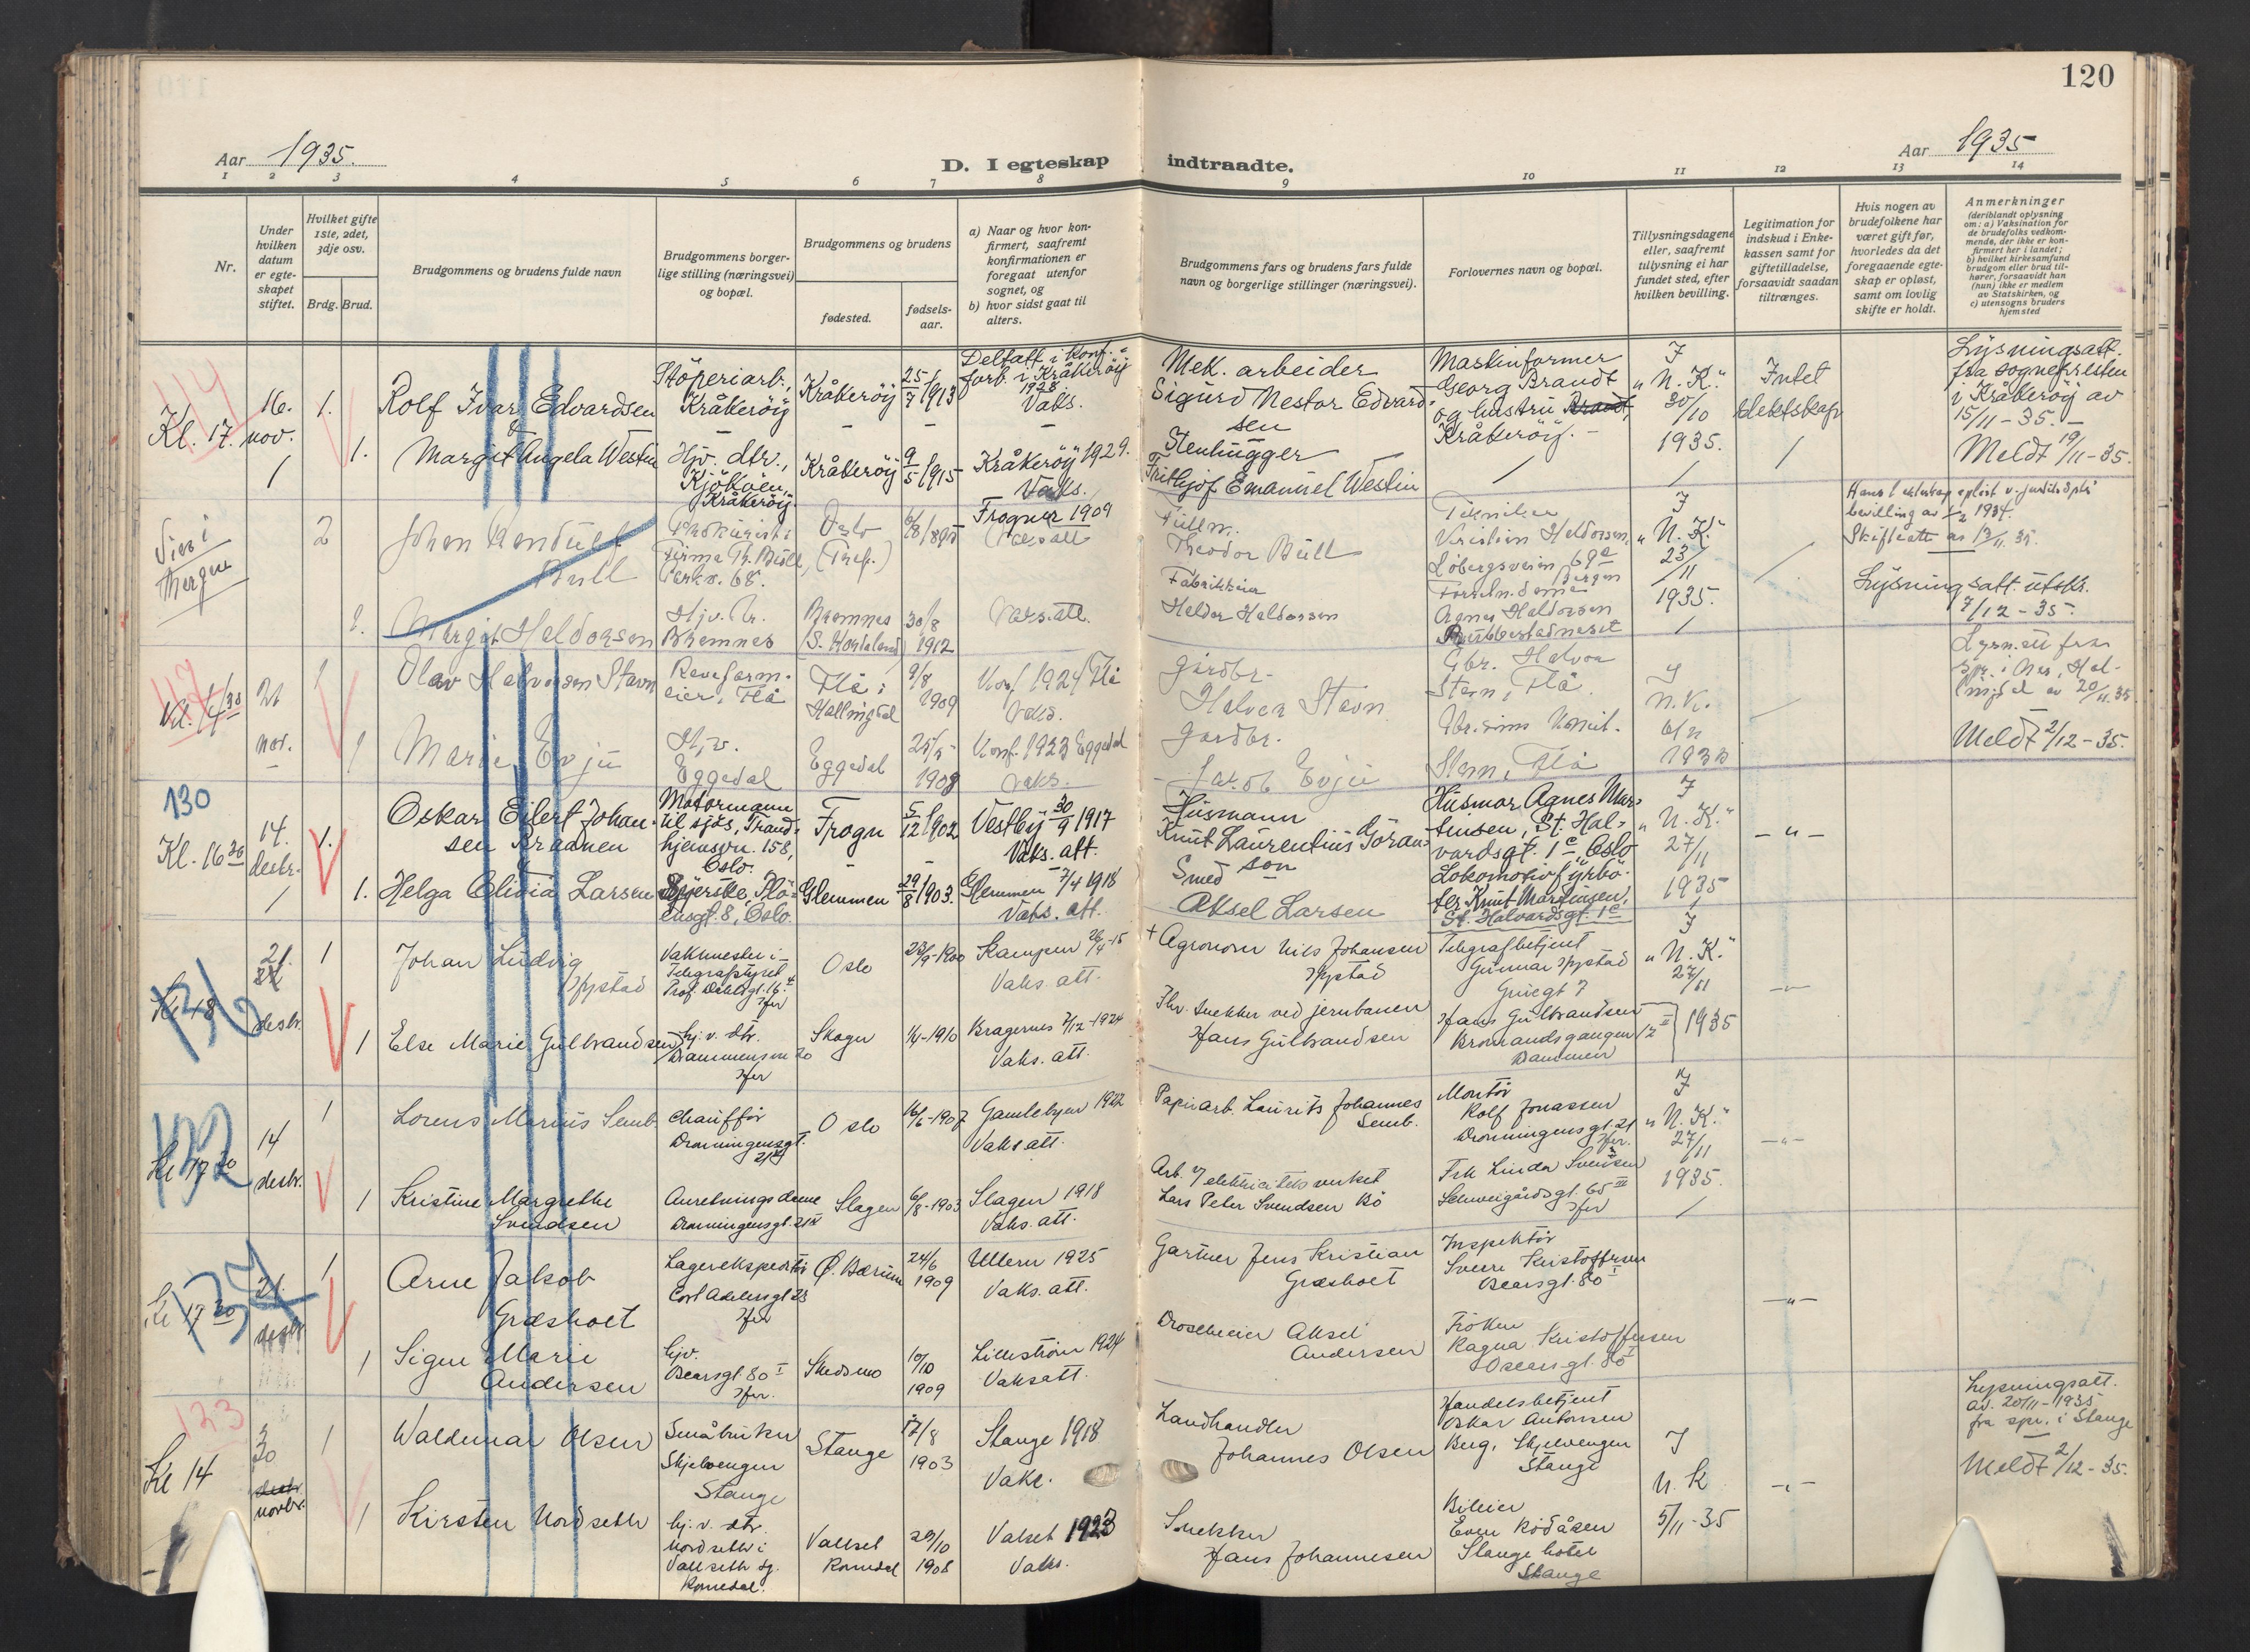 120
Aar 1935.
D. I egteskap indtraadte.
Aar 1935
1 2 3 4 5 6 7 8 9 10 11 12 13 14
Nr.
Under
hvilken
datum
er egte-
skapet
stiftet.
Hvilket gifte
1ste, 2det,
3dje osv.
Brdg. Brud.
Brudgommens og brudens fulde navn
Brudgommens borger-
lige stilling (næringsvei)
og bopæl.
Brudgommens og brudens
fødested.
fødsels-
aar.
a) Naar og hvor kon-
firmert, saafremt
konfirmationen er
foregaat utenfor
sognet, og
b) hvor sidst gaat til
alters.
Brudgommens fars og brudens fars fulde
navn og borgerlige stillinger (næringsvei).
Forlovernes navn og bopæl.
Tillysningsdagene
eller, saafremt
tillysning ei har
fundet sted, efter
hvilken bevilling.
Legitimation for
indskud i Enke-
kassen samt for
giftetilladelse,
forsaavidt saadan
tiltrænges.
Hvis nogen av
brudefolkene har
været gift før,
hvorledes da det
foregaaende egte-
skap er opløst,
samt om lovlig
skifte er holdt.
Anmerkninger
(deriblandt oplysning
om: a) Vaksination for
de brudefolks vedkom-
mende, der ikke er kon-
firmert her i landet;
b) hvilket kirkesamfund
brudgom eller brud til-
hører, forsaavidt han
(hun) ikke er medlem
av Statskirken, og
c) utensogns bruders
hjemsted
114
Kl. 17.
16.
nov.
1.
Rolf Ivar Edvardsen
&
Støperiarb.,
Kråkerøy
Kråkerøy
25/7 1913
Deltatt i konf.-
forb. i Kråkerøy
1928.
Vaks.
Mek. arbeider
Sigurd Nestor Edvard-
sen
Maskinformer
Georg Brandt
og hustru Brandt,
Kråkerøy.
I
"N. K."
30/10
1935.
Intet
slektskap
Lysningsatt.
fra sognepresten
i Kråkerøy av
15/11-35.
Meldt 19/11-35.
1.
Margit Angela Westin
Hjv. dtr.,
Kjøkøen,
Kråkerøy.
Kråkerøy
9/5 1915
Kråkerøy 1929.
Vaks.
Stenhugger
Frithjof Emanuel Westin
Viet i
Bergen
2
Johan
Bull
Prokurist i
Firma Th. Bull,
Parkv. 68.
Oslo
(Tref.)
Frogner 1909
Vaks att
Fullm.
Theodor Bull
Kristian Haldorsen,
Løbergsveien 69a
Bergen
I
"N. K."
23/11
1935.
bevilling av 1/2 1934.
Skifteatt av 13/11.35.
Lysningsatt. utstkr.
7/12-35.
Margit Haldorsen
Hjv. dtr.
Bremnes
Bremnes
(S. Hordaland)
30/8
1912
Vaks. att.
Fabrikkeier
Haldor Haldorsen
Agnes Haldorsen
Rubbestadneset
117
Kl. 14 30
nov.
1
Olav Halvorsen Stavn
Revefarm-
eier, Flå
Flå i
Hallingdal
9/8
1909
Konf 1924 Flå
Vaks.
Gårdbr.
Halvor Stavn
Gbr. Halvor
Stavn, Flå.
N. K.
Lysn.att fra
Meldt 2/12-35.
1
Marie Evju
Hjv.
Eggedal
Eggedal
25/5
1908
Konf. 1923 Eggedal
Vaks.
Gårdbr.
Jakob Evju
Stavn, Flå
130
Kl. 16 30
14.
desbr.
1.
Oskar Eilert Johan-
sen Braanen
&
Motormann
til sjøs, Trond-
hjemsvn. 158,
Oslo.
Frogn
5/12 1902
Vestby 30/9 1917
Vaks. att.
Husmann
Knut Laurentius Gøran-
son
Husmor Agnes Mar-
tinsen, St. Hal-
vardsgt. 1c Oslo
I
"N. K."
27/11
1935
- " -
1.
Helga Olivia Larsen
Syerske,
ensgt. 8, Oslo.
Glemmen
29/8 1903.
Glemmen 7/4 1918
Vaks. att.
Smed
Aksel Larsen
Lokomotivfyrbø-
ter Knut Martinsen,
St. Halvardsgt. 1c
131
Kl 18
21.
desbr.
1
Johan Ludvig
Hystad
Vaktmester i
Telegrafstyret
Prof. Dahlsgt. 16.
her
Oslo
28/9-1900
Kampen 26/4-15
Vaks. att.
† Agronom Nils Johansen
Hystad
Telegrafbetjent
Gunnar Hystad
I
"N. K."
27/11
1935
1
Else Marie Gulbrandsen
hj. v. dtr.
Drammensvn 20
her
Skoger
1/4-1910
Bragernes 7/12-1924
Vaks. att.
Fhv. snekker ved jernbanen
Hans Gulbrandsen
Hans Gulbrandsen
Drammen
132
Kl 17 30
14
desbr.
1
Lorens Marius Semb.
Chauffør
Dronningensgt.
Oslo
16/6-1907
Gamlebyen 1922
Vaks att.
Papirarb. Laurits Johannes
Semb.
Montør
Rolf Jonassen
Dronningensgt. 21
her.
I
"N. K."
27/11
1935.
- " -
1
Kristine Margrethe
Svendsen
Anretningsdame
Dronningensgt. 21
Slagen
6/8-1903
Slagen 1918
Vaks. att.
Arb. v/ elektricitetsverket
Lars Peter Svendsen Bø
Frk Linda Svendsen
Schweigårdsgt. 65 III
her
134
Kl 17 30
21.
desbr
1
Arne Jakob
Græsholt
Lagerekspeditør
Cort Adelersgt 23
her
Ø. Bærum
24/6
1909
Ullern 1925
Vaks. att.
Gartner Jens Kristian
Græsholt
Inspektør
Sverre Kristoffersen
Oscarsgt. 80 I
- " -
1
Signe Marie
Andersen
hjv.
Oscarsgt. 80 I
her.
Skedsmo
10/10
1909
Lillestrøm 1924
Vaks att.
Droscheeier Aksel
Andersen
Frøken
Ragna Kristoffersen
Oscarsgt. 80 I
123
Kl 14
30
desbr
novbr.
1
Waldemar Olsen
Småbruker
Skjelvengen
Stange
Stange
17/8
1903
Stange 1918
Vaks.
Landhandler
Johannes Olsen
Handelsbetjent
Oskar Antonsen
Berg, Skjelvengen
Stange
I
N. K
5/11-35
Lysningsatt.
av. 20/11-1935
fra spr. i Stange
Meldt 2/12-35.
1
Kirsten Nordseth
hj. v. dtr.
Nordseth i
Vallseth sg.
Romedal.
Vallset
Romedal
29/10
1908
Valset 1923
Vaks.
Snekker
Hans Johannesen
Bileier
Even Rødåsen
Stange hotel
Stange